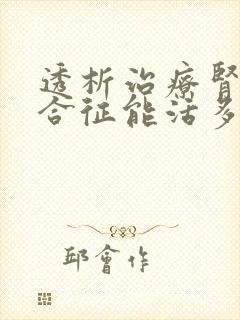 透析治療腎
合征能活多
邱會作